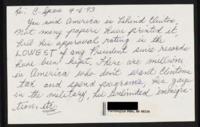 To: C. Span 4-6-93
You said America is behind Clinton.
Not many papers have printed it,
but his approval rating is the
LOWEST of any President since records
have been kept. There are millions
in America who don't want Clintons
tax and spend programs, his gays
in the military, his unlimited immigra-
tion, etc.